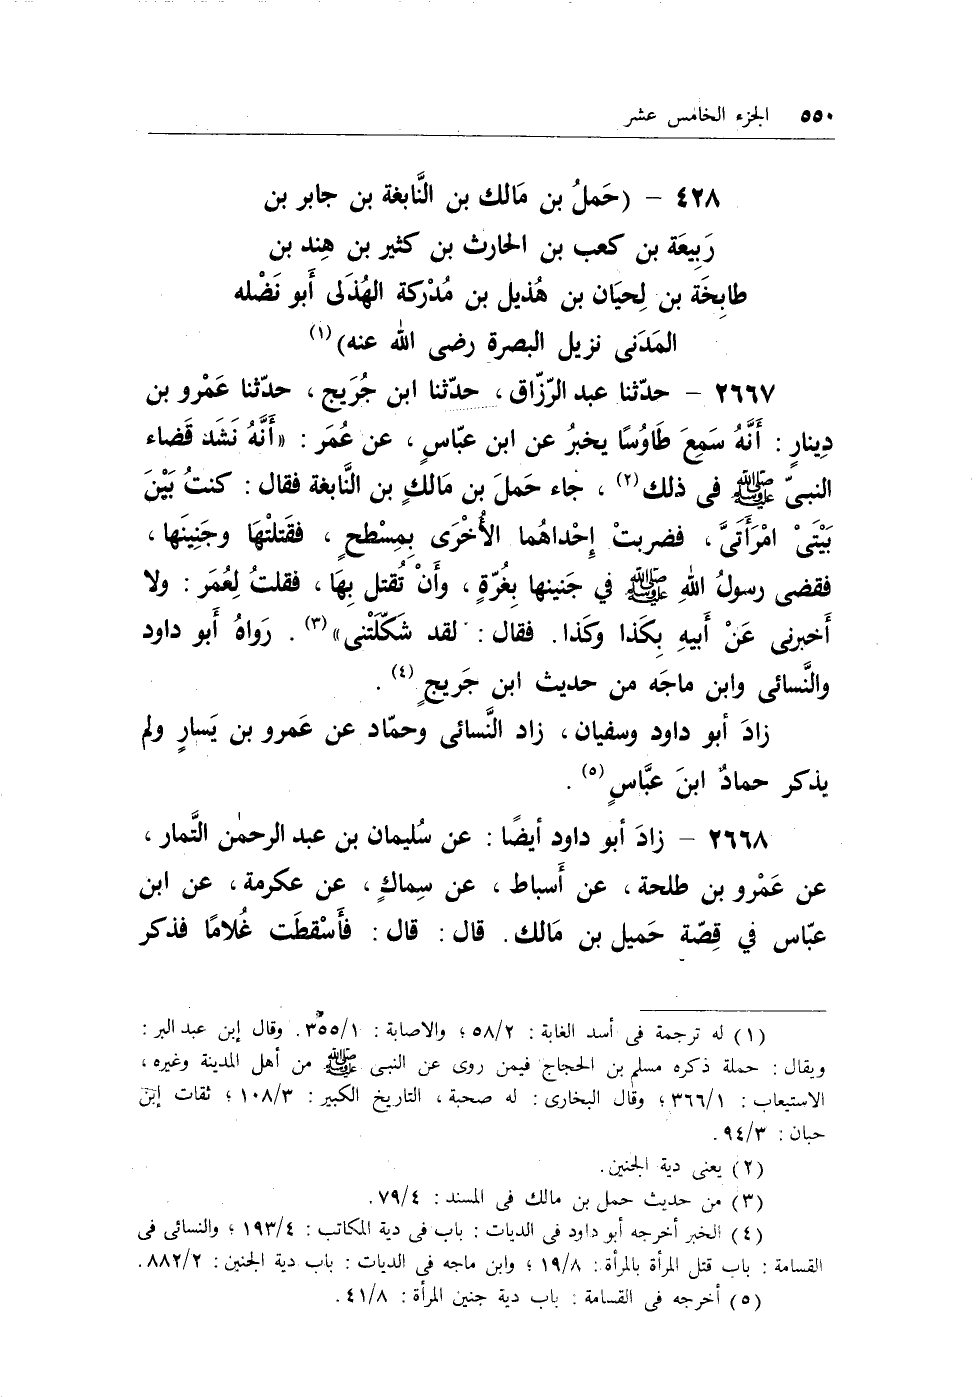 ٥٥٠ الجزء الخامس عشر
٤٢٨ – (حَملُ بن مَالك بن النَّابغة بن جابر بن
رَبِيعَة بن كعب بن الحارث بن كثير بن هِند بن
طابِخَة بن لِحيَان بن هُذيل بن مُدْركة الهُذَلى أَبو نَضْله
المَدَنى نزيل البصرة رضى الله عنه)(١)
٢٦٦٧ – حدّثنا عبد الرّزّاق، حدّثنا ابن جُرَيج، حدّثنا عَمْرو بن
دِينارٍ: أَنَّهُ سَمِعَ طَاوُسًا يخبرُ عن ابن عبّاسٍ، عن عُمَر: «أَنَّهُ نَشَد قَضاء
النبىّ ﷺ فى ذلك(٢)، جاء حَملَ بن مَالكٍ بن النَّابغة فقال: كنتُ بَيْنَ
بَيْتَىْ امْرَأَتَىَّ، فضربتْ إِحْداهُما الأُخْرَى بِمِسْطحٍ، فقَتلتْهَا وجَنِينَها،
فقضى رسولُ اللهِ ﷺ في جَنينها بغُرّةٍ، وأَنْ تُقتل بِهَا، فقلتُ لِعُمَر: ولا
أَخبرنى عَنْ أَبيهِ بكَذا وكَذا. فقال: لقد شَكّلَتْنى»(٣). رَواهُ أَبو داود
والنَّسائى وابن ماجَه من حديث ابن جَريجٍ(٤).
زادَ أَبو داود وسفيان، زاد النَّسائى وحمّاد عن عَمرو بن يَسارٍ ولم
يذكر حمادٌ ابنَ عبَّاسٍ(٥).
٢٦٦٨ – زادَ أَبو داود أيضًا: عن سُليمان بن عبد الرحمٰن التَّمار،
عن عَمْرو بن طلحة، عن أَسباط، عن سِماكٍ، عن عكرمة، عن ابن
عبّاس في قِصّة حَميل بن مَالك. قال: قال: فأَسْقطَت غُلامًا فذكر
(١) له ترجمة فى أسد الغابة: ٥٨/٢؛ والاصابة: ٣٥٥/١. وقال إبن عبد البر:
ويقال: حملة ذكره مسلم بن الحجاج فيمن روى عن النبى ﷺ من أهل المدينة وغيره،
الاستيعاب: ٣٦٦/١؛ وقال البخارى: له صحبة، التاريخ الكبير: ١٠٨/٣؛ ثقات إبن
حبان: ٩٤/٣.
(٢) يعنى دية الجنين.
(٣) من حديث حمل بن مالك فى المسند: ٧٩/٤.
(٤) الخبر أخرجه أبو داود فى الديات: باب فى دية المكاتب: ١٩٣/٤؛ والنسائى فى
القسامة: باب قتل المرأة بالمرأة: ١٩/٨؛ وابن ماجه فى الديات: باب دية الجنين: ٨٨٢/٢.
(٥) أخرجه فى القسامة: باب دية جنين المرأة: ٤١/٨.